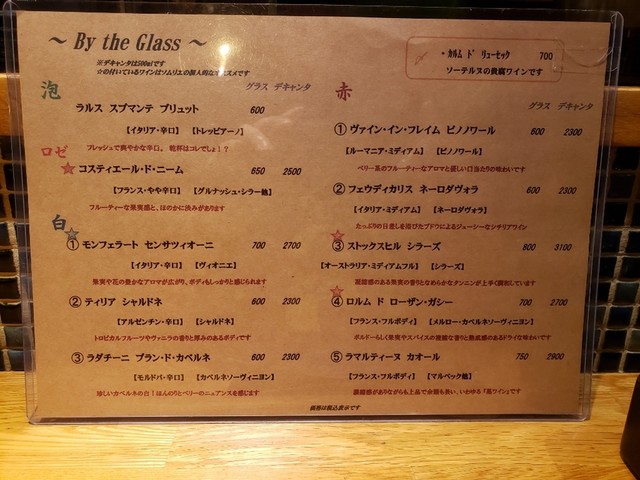 ～ By the Glass ～
※デキャンタは500mlです
☆の付いているワインはソムリエの個人的なオススメです
・カルム ド リューセック 700
ソーテルヌの貴腐ワインです
泡
グラス デキャンタ
ラルス スプマンテ ブリュット 600
【イタリア・辛口】 【トレッビアーノ】
フレッシュで爽やかな辛口。 乾杯はコレでしょ！？
ロゼ
☆ コスティエール・ド・ニーム 650 2500
【フランス・やや辛口】 【グルナッシュ・シラー他】
フルーティーな果実感と、ほのかに渋みがあります
白
☆
① モンフェラート センサツィオーニ 700 2700
【イタリア・辛口】 【ヴィオニエ】
果実や花の豊かなアロマが広がり、ボディもしっかりと感じられます
② ティリア シャルドネ 600 2300
【アルゼンチン・辛口】 【シャルドネ】
トロピカルフルーツやヴァニラの香りと厚みのあるボディです
③ ラダチーニ ブラン・ド・カベルネ 600 2300
【モルドバ・辛口】 【カベルネソーヴィニヨン】
珍しいカベルネの白！ほんのりとベリーのニュアンスを感じます
赤
グラス デキャンタ
① ヴァイン・イン・フレイム ピノノワール 600 2300
【ルーマニア・ミディアム】 【ピノノワール】
ベリー系のフルーティーなアロマと優しい口当たりの味わいです
② フェウディカリス ネーロダヴォラ 600 2300
【イタリア・ミディアム】 【ネーロダヴォラ】
たっぷりの日差しを浴びたブドウによるジューシーなシチリアワイン
☆
③ ストックスヒル シラーズ 800 3100
【オーストラリア・ミディアムフル】 【シラーズ】
凝縮感のある果実の香りとなめらかなタンニンが上手く調和しています
☆
④ ロルム ド ローザン・ガシー 700 2700
【フランス・フルボディ】 【メルロー・カベルネソーヴィニヨン】
ボルドーらしく果実やスパイスの複雑な香りと熟成感のあるドライな味わいです
⑤ ラマルティーヌ カオール 750 2900
【フランス・フルボディ】 【マルベック他】
凝縮感がありながらも上品で余韻も長い、いわゆる「黒ワイン」です
価格は税込表示です